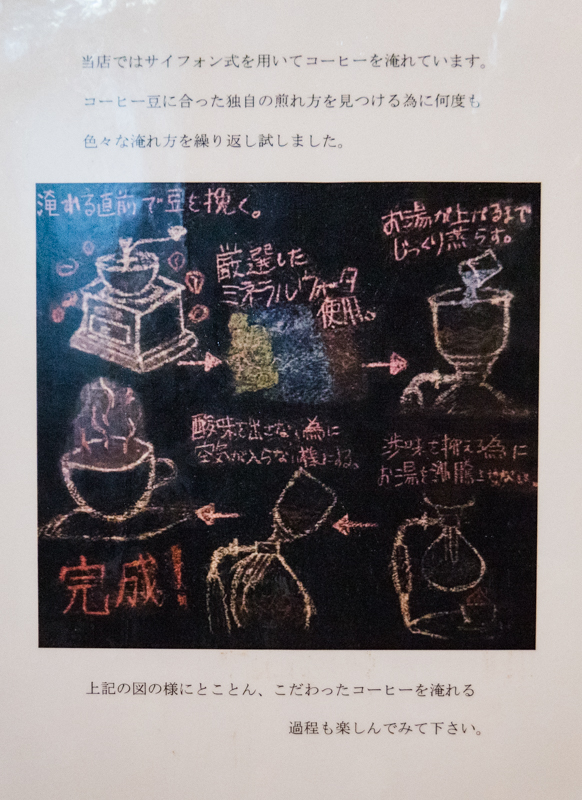 当店ではサイフォン式を用いてコーヒーを淹れています。
コーヒー豆に合った独自の煎れ方を見つける為に何度も
色々な淹れ方を繰り返し試しました。
淹れる直前で豆を挽く。
厳選した
ミネラルウォータ
使用。
お湯が上がるまで
じっくり蒸らす。
渋味を抑える為に
お湯を沸騰させない。
酸味を出さない為に
空気が入らない様にする。
完成!
上記の図の様にとことん、こだわったコーヒーを淹れる
過程も楽しんでみて下さい。